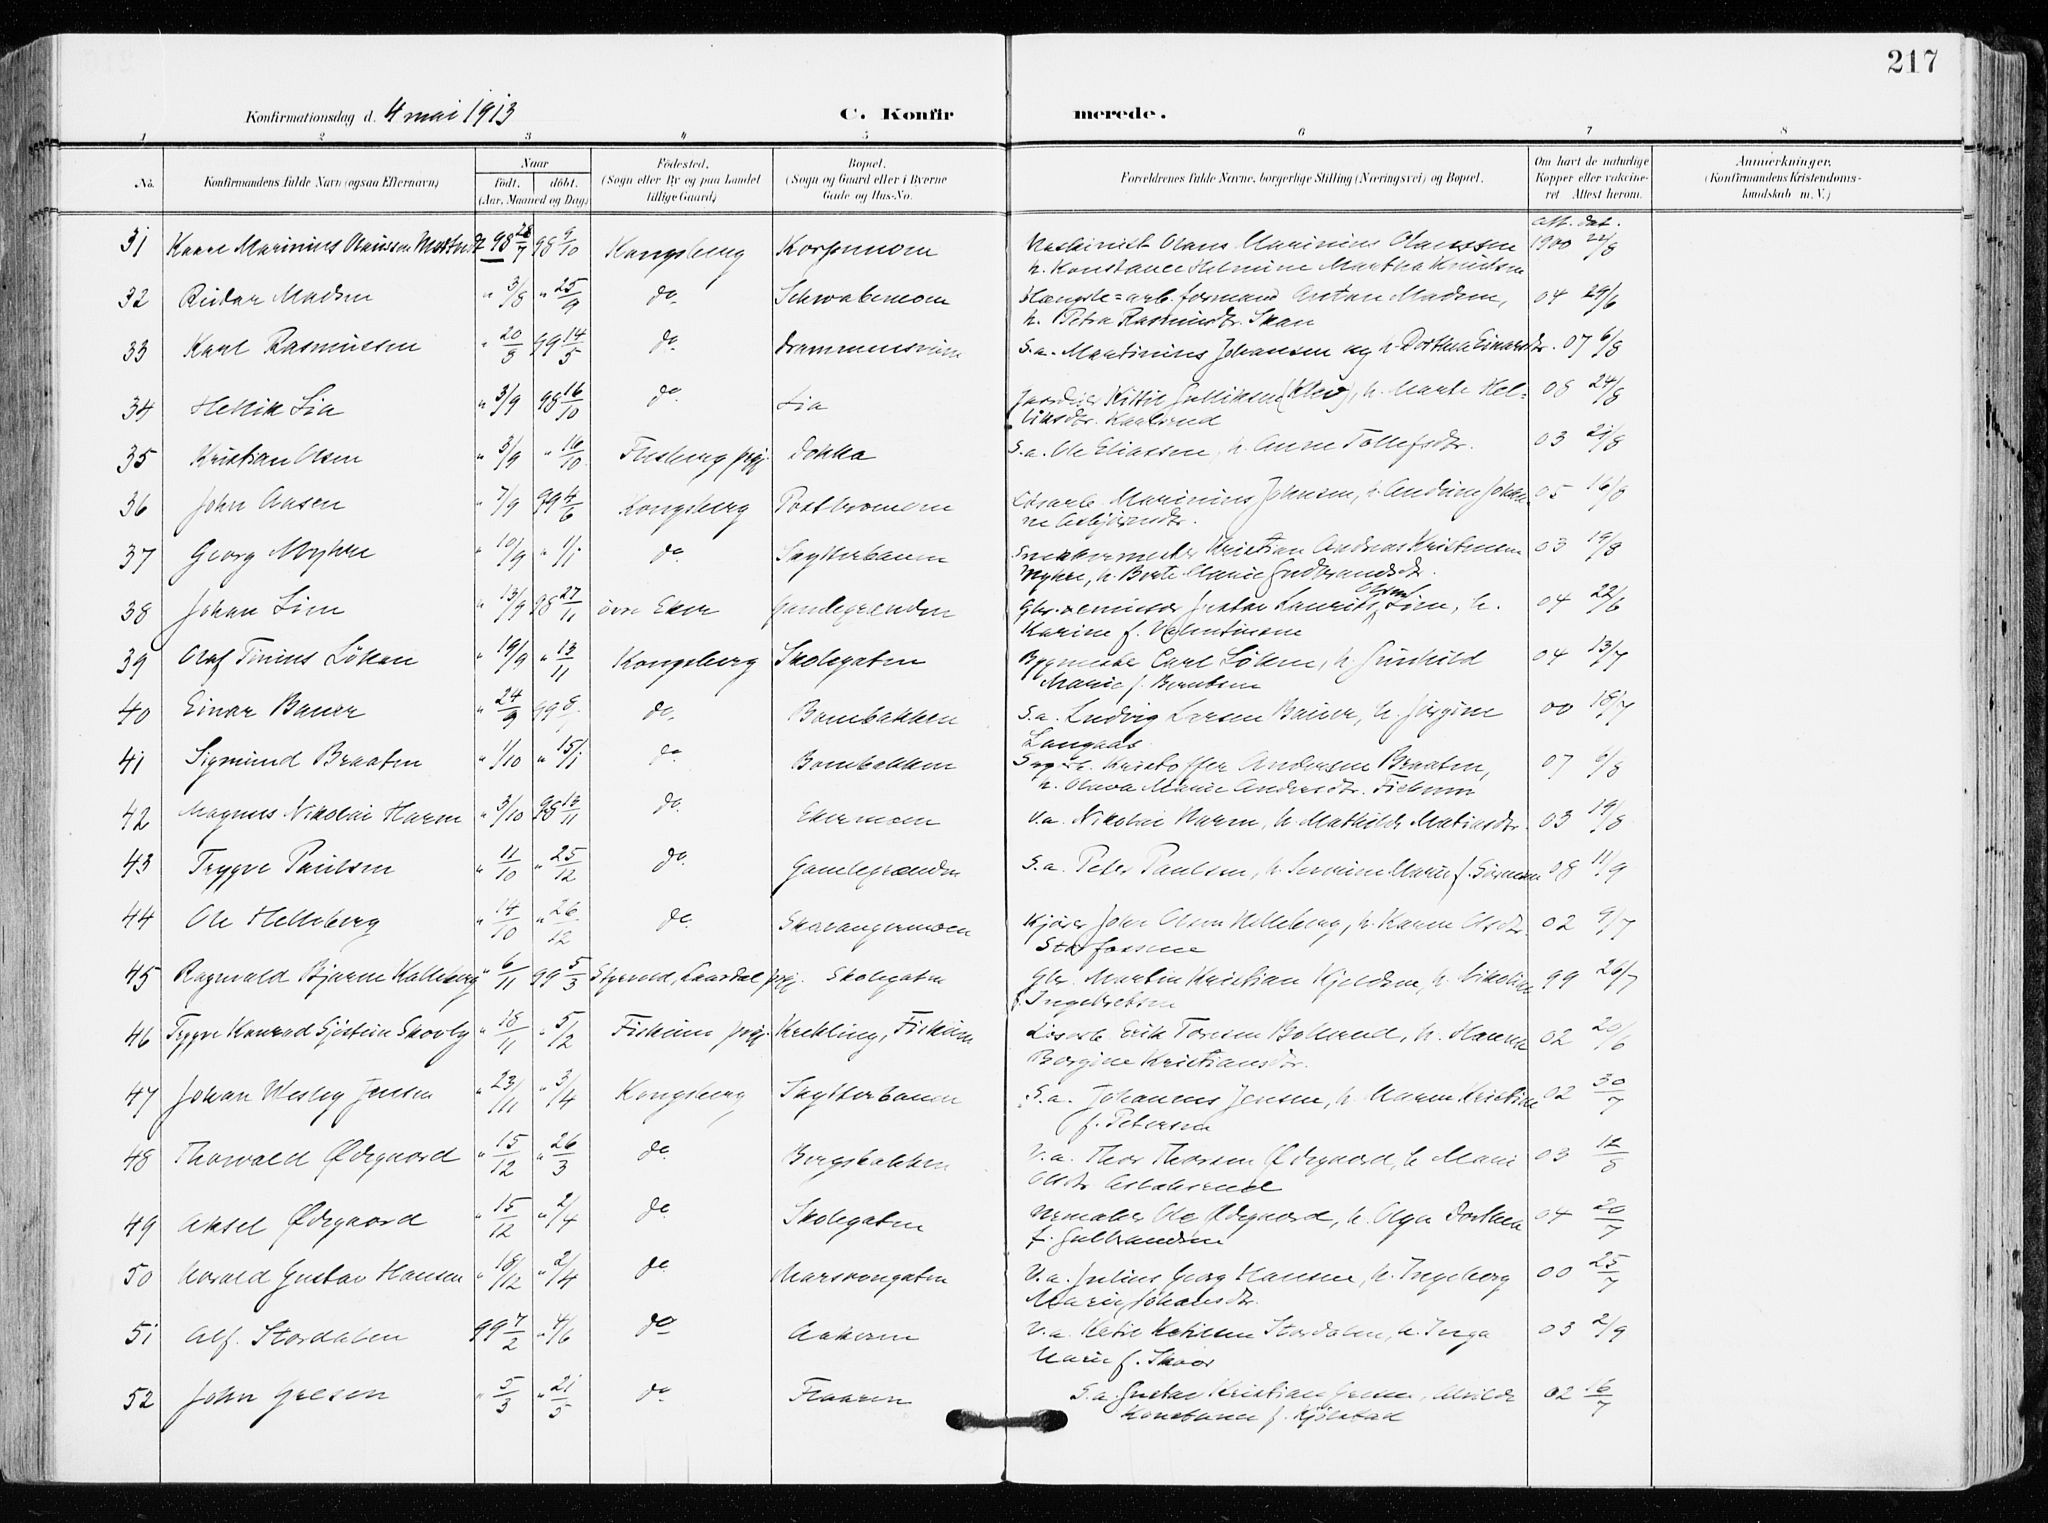 217
Konfirmationsdag d. 4 mai 1913 C. Konfirmerede.
1 2 3 4 5 6 7 8
No. Konfirmandens fulde Navn (ogsaa Efternavn) Naar født. døbt. (Aar, Maaned og Dag) Fødested. (Sogn eller By og paa Landet tillige Gaard) Bopæl. (Sogn og Gaard eller i Byerne Gade og Hus-No. Forældrenes fulde Navne, borgerlige Stilling (Næringsvei) og Bopæl. Om havt de naturlige Kopper eller vaccineret Attest herom. Anmerkninger. (Konfirmandens Kristendomskundskab m. V.)
att. dat.
31 Kaare Marinius Olaussen 98 28/7 98 9/10 Kongsberg Korpemoen Maskinist Olaus Marinius Olaussen 1900 22/8
h. Konstance Helmine Martha Knutsen
32 Reidar Madsen " 3/8 " 25/9 do. Schwabemoen arb. formand Anton Madsen, 04 29/6
h. Petra Rasmusdtr. Skau
33 Karl Rasmussen " 20/8 99 14/5 do. Drammensveien S.a. Martinius Johansen og h. Dorthea Einarsdtr. 07 6/8
34 Hellik Lia " 3/9 98 16/10 do. Lia Jordeier Kittil Gulliksen (Klev), h. Marte Hel- 08 24/8
liksdtr.
35 Kristian Olsen " 3/9 " 16/10 Flesberg prgj. Dokka S.a. Ole Eliassen, h. Anne Tollefsdtr. 03 21/8
36 John Aasen " 7/9 99 4/6 Kongsberg Løsarb. Marinius Johnsen, h. Andrine Johan- 05 16/8
ne Asbjørnsdtr.
37 Georg Myhre " 10/9 " 1/1 do. Skytterbanen Kristian Andreas Kristensen 03 19/8
Myhre, h. Berte Marie Gudbrandsdtr.
38 Johan Lien " 13/9 98 27/11 øvre Eker Gamlegrenden Gustav Laurits Lien, h. 04 22/6
Karine f. Valentinsen
39 Olaf Tinius Løken " 19/9 " 13/11 Kongsberg Skolegaten Bygmester Carl Løken, h. Gunhild 04 13/7
Marie f. Berntsen
40 Einar Bauer " 24/9 99 do. Bombakken S.a. Ludvig Larsen Bauer, h. Jørgine 00 18/7
Langaas
41 Sigmund Braaten " 1/10 " 15/1 do. Bombakken Kristoffer Andersen Braaten, 07 6/8
h. Olava Marie Andersdtr.
42 Magnus Nikolai Harem " 3/10 98 13/11 do. Ekermoen V.a. Nikolai Harem, h. Mathilde Matiasdtr. 03 19/8
43 Trygve Paulsen " 11/10 " 25/12 do. Gamlegrænden S.a. Peter Paulsen, h. Severine Marie f. Sørensen 08 11/9
44 Ole Helleberg " 14/10 " 26/12 do. Skavangermoen Kjører John Olsen Helleberg, h. Karen Olsdtr. 02 9/7
Storfossene
45 Ragnvald Bjarne Kalleberg " 6/11 99 5/3 Laardal prgj. Skolegaten Gbr. Martin Kristian Kjeldsen, h. Nikoline 99 26/7
f. Ingebretsen
46 Trygve Konrad Sjøstein Skovly " 18/11 " 5/2 Fiskum prgj. Krekling, Fiskum Løsarb. Erik Toresen Bollerud, h. Hanna 02 20/6
Borgine Kristiansdtr.
47 Johan Wesley Jensen " 23/11 " 3/4 Kongsberg Skytterbanen S.a. Johannes Jensen, h. Maren Kristine 02 30/7
f. Petersen
48 Thorvald Ødegaard " 15/12 " 26/3 do. Bergsbakken V.a. Thor Thorsen Ødegaard, h. Marie 03 12/8
Olsdtr.
49 Aksel Ødegaard " 15/12 " 2/4 do. Skolegaten Urmaker Ole Ødegaard, h. Olga Dorthea 04 20/7
f. Gulbrandsen
50 Harald Gustav Hansen " 18/12 " 2/4 do. V.a. Julius Georg Hansen, h. Ingeborg 00 25/7
Marie Johansdtr.
51 Alf Stordalen 99 7/2 " 4/6 do Aakeren V.a. Ketil Ketilsen Stordalen, h. Inga 03 2/9
Marie f. Skoor
52 John Gresen " 5/3 " 21/5 do. Flaaren S.a. Gustav Kristian 02 16/7
Konstance f. Kjølstad